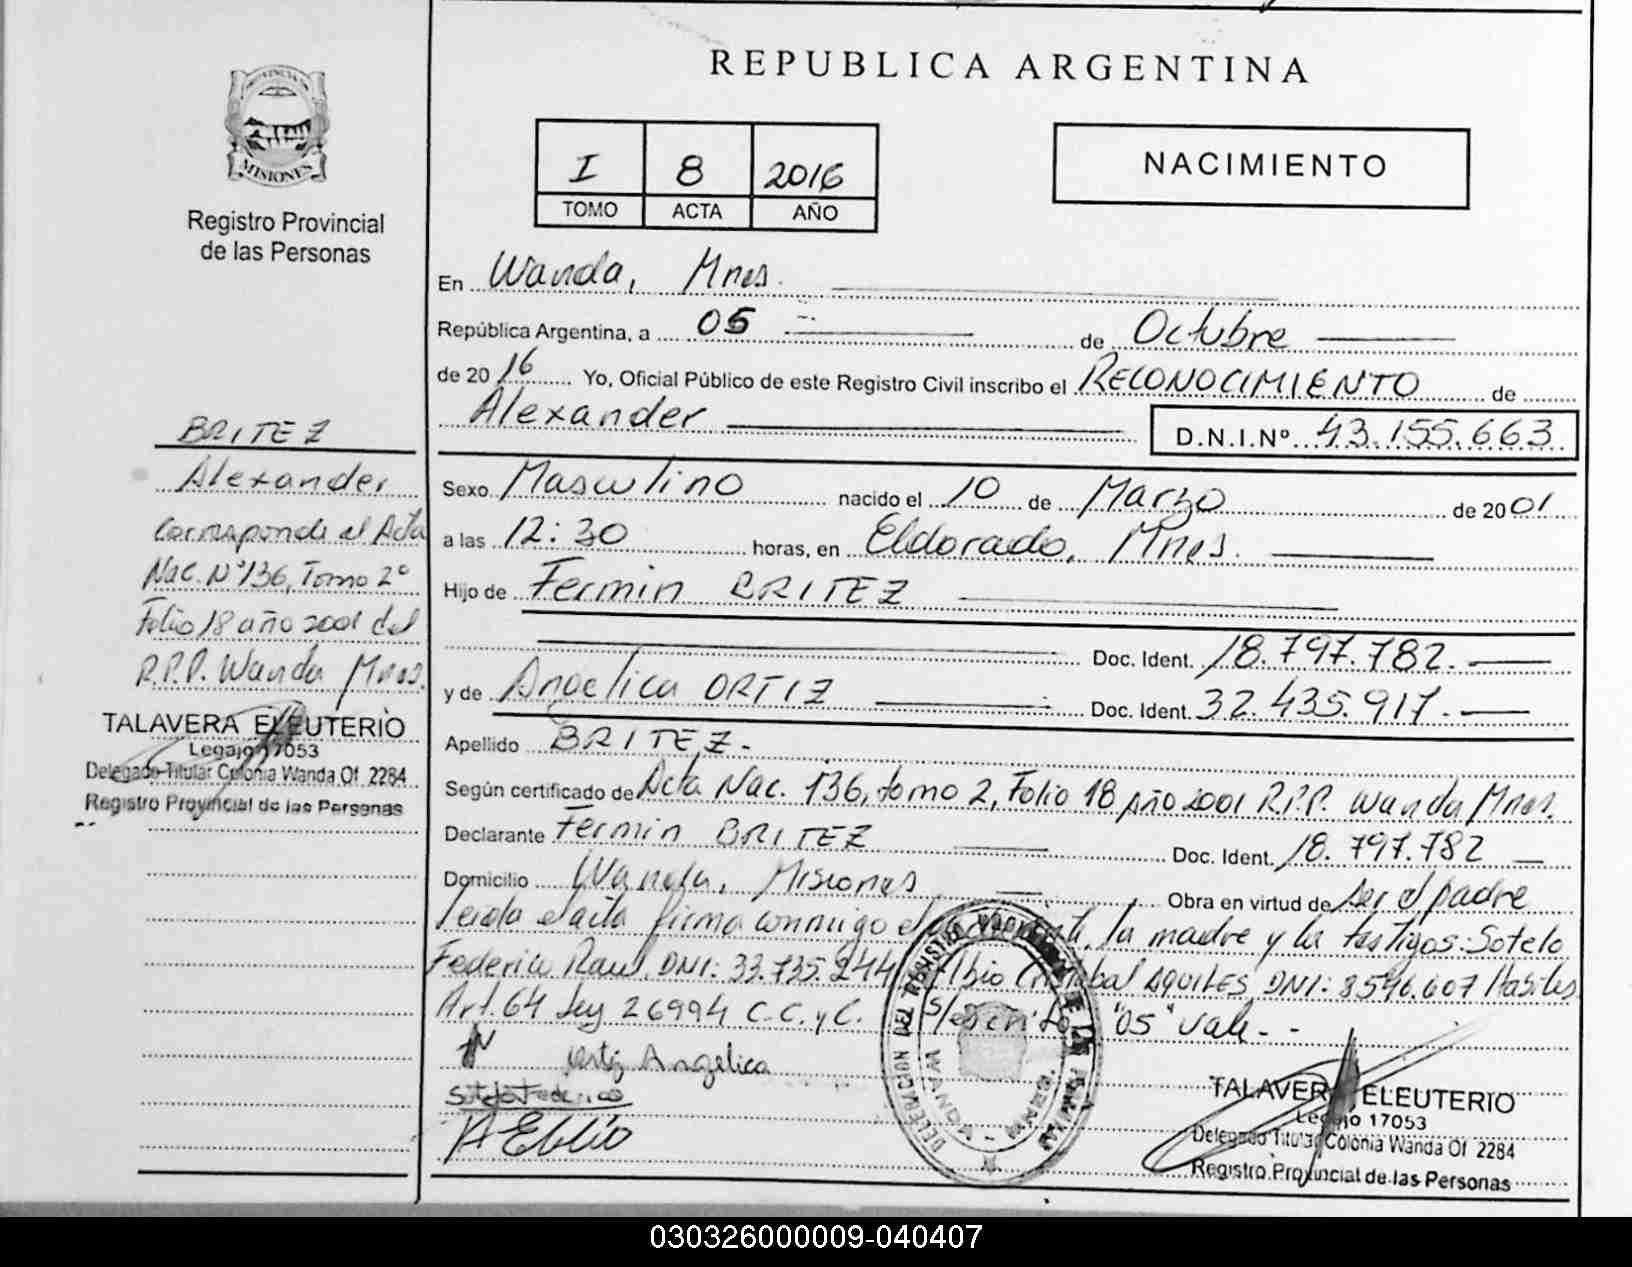 REPUBLICA ARGENTINA
PROVINCIA DE
MISIONES
Registro Provincial
de las Personas
I 8 2016
TOMO ACTA AÑO
NACIMIENTO
En Wanda, Mnes.
República Argentina, a 05 de Octubre
de 2016 Yo, Oficial Público de este Registro Civil inscribo el RECONOCIMIENTO de
Alexander D.N.I.Nº 43.155.663
Sexo Masculino nacido el 10 de Marzo de 2001
a las 12:30 horas, en Eldorado, Mnes.
Hijo de Fermin BRITEZ
Doc. Ident. 18.797.782.
y de Angelica ORTIZ Doc. Ident. 32.435.917.
Apellido BRITEZ.-
Según certificado de Acta Nac. 136, tomo 2, Folio 18 Año 2001 R.P.P. Wanda Mnes.
Declarante Fermin BRITEZ Doc. Ident. 18.797.782
Domicilio Wanda, Misiones Obra en virtud de ser el padre
leida el acta firma conmigo el la madre y los testigos: Sotelo
Federico Raul DNI: 33.735.244 Cristobal AQUILES DNI: 8546.607 Habiles
Art. 64 Ley 26994 C.C.y C. S/escrito "05" Vale.-
Ortiz Angelica
Sotelo Federico
DELEGACION DEL REGISTRO DE LAS PERSONAS
WANDA - MISIONES
TALAVERA ELEUTERIO
Legajo 17053
Delegado Titular Colonia Wanda Of 2284
Registro Provincial de las Personas
BRITEZ
Alexander
Corresponde al Acta
Nac. Nº136, Tomo 2º
Folio 18 año 2001 del
R.P.P. Wanda Mnes.
TALAVERA ELEUTERIO
Legajo 17053
Delegado Titular Colonia Wanda Of. 2284
Registro Provincial de las Personas
030326000009-040407